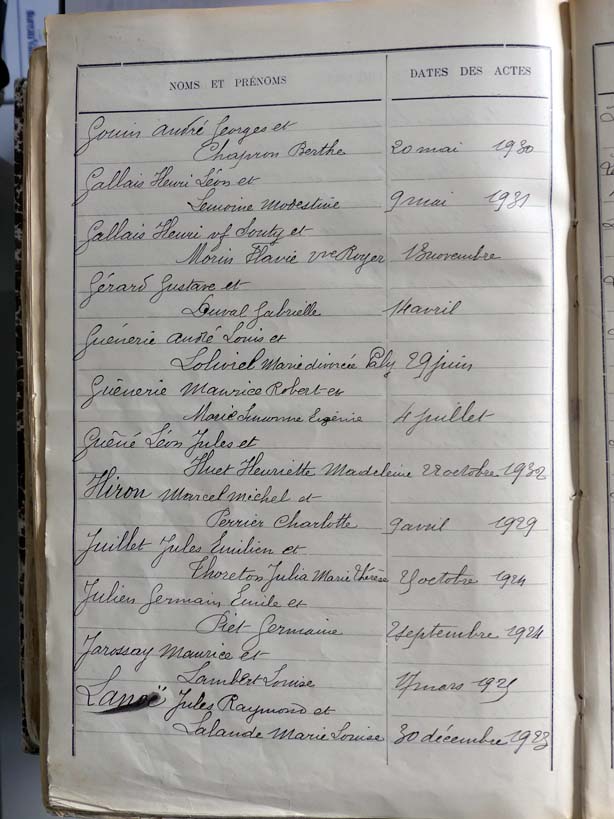 NOMS ET PRÉNOMS DATES DES ACTES
Gouin André Georges et
Chapron Berthe 20 mai 1930
Gallais Henri Léon et
Lemoine Modestine 9 mai 1931
Gallais Henri vf Souty et
Morin Flavie vve Royer 13 novembre
Gérard Gustave et
Duval Gabrielle 14 avril
Guénerie André Louis et
Marie divorcée 29 juin
Guénerie Maurice Robert et
Marie Suzanne Eugénie 4 juillet
Guéné Léon Jules et
Huet Henriette Madeleine octobre 1932
Hiron Marcel Michel et
Perrier Charlotte 9 avril 1929
Juillet Jules Emilien et
Thoreton Julia Marie Thérèse octobre 1924
Julien Germain Emile et
Piet Germaine septembre 1924
Jarossay Maurice et
Lambert Louise mars
Lanoë Jules Raymond et
Lalande Marie Louise 30 décembre 1923